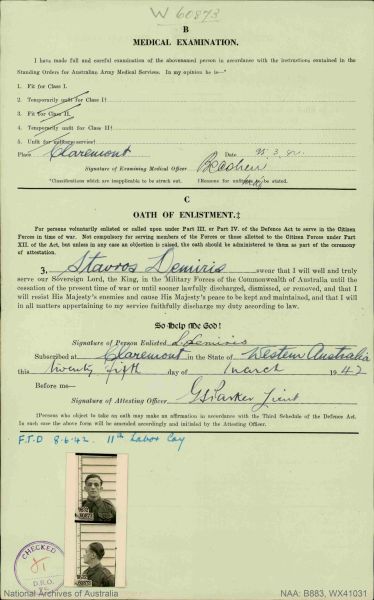 W 60873
B
MEDICAL EXAMINATION.
I have made full and careful examination of the abovenamed person in accordance with the instructions contained in the
Standing Orders for Australian Army Medical Services. In my opinion he is—*
1. Fit for Class I.
2. Temporarily unfit for Class I†
3. Fit for Class II.
4. Temporarily unfit for Class II†
5. Unfit for military service†
Place Claremont Date 25.3.42.
Signature of Examining Medical Officer
*Classifications which are inapplicable to be struck out. †Reasons for unfitness to be stated.
C
OATH OF ENLISTMENT.‡
For persons voluntarily enlisted or called upon under Part III. or Part IV. of the Defence Act to serve in the Citizen
Forces in time of war. Not compulsory for serving members of the Forces or those allotted to the Citizen Forces under Part
XII. of the Act, but unless in any case an objection is raised, the oath should be administered to them as part of the ceremony
of attestation.
I, Stavros Demiris swear that I will well and truly
serve our Sovereign Lord, the King, in the Military Forces of the Commonwealth of Australia until the
cessation of the present time of war or until sooner lawfully discharged, dismissed, or removed, and that I
will resist His Majesty's enemies and cause His Majesty's peace to be kept and maintained, and that I will
in all matters appertaining to my service faithfully discharge my duty according to law.
So Help Me God!
Signature of Person Enlisted S Demiris
Subscribed at Claremont in the State of Western Australia
this twenty fifth day of March 1942
Before me—
Signature of Attesting Officer G S Parker Lieut
‡Persons who object to take an oath may make an affirmation in accordance with the Third Schedule of the Defence Act.
In such case the above form will be amended accordingly and initialed by the Attesting Officer.
F.T.D 8.6.42. 11th Labor Coy
CHECKED
D.R.O.
National Archives of Australia
NAA: B883, WX41031